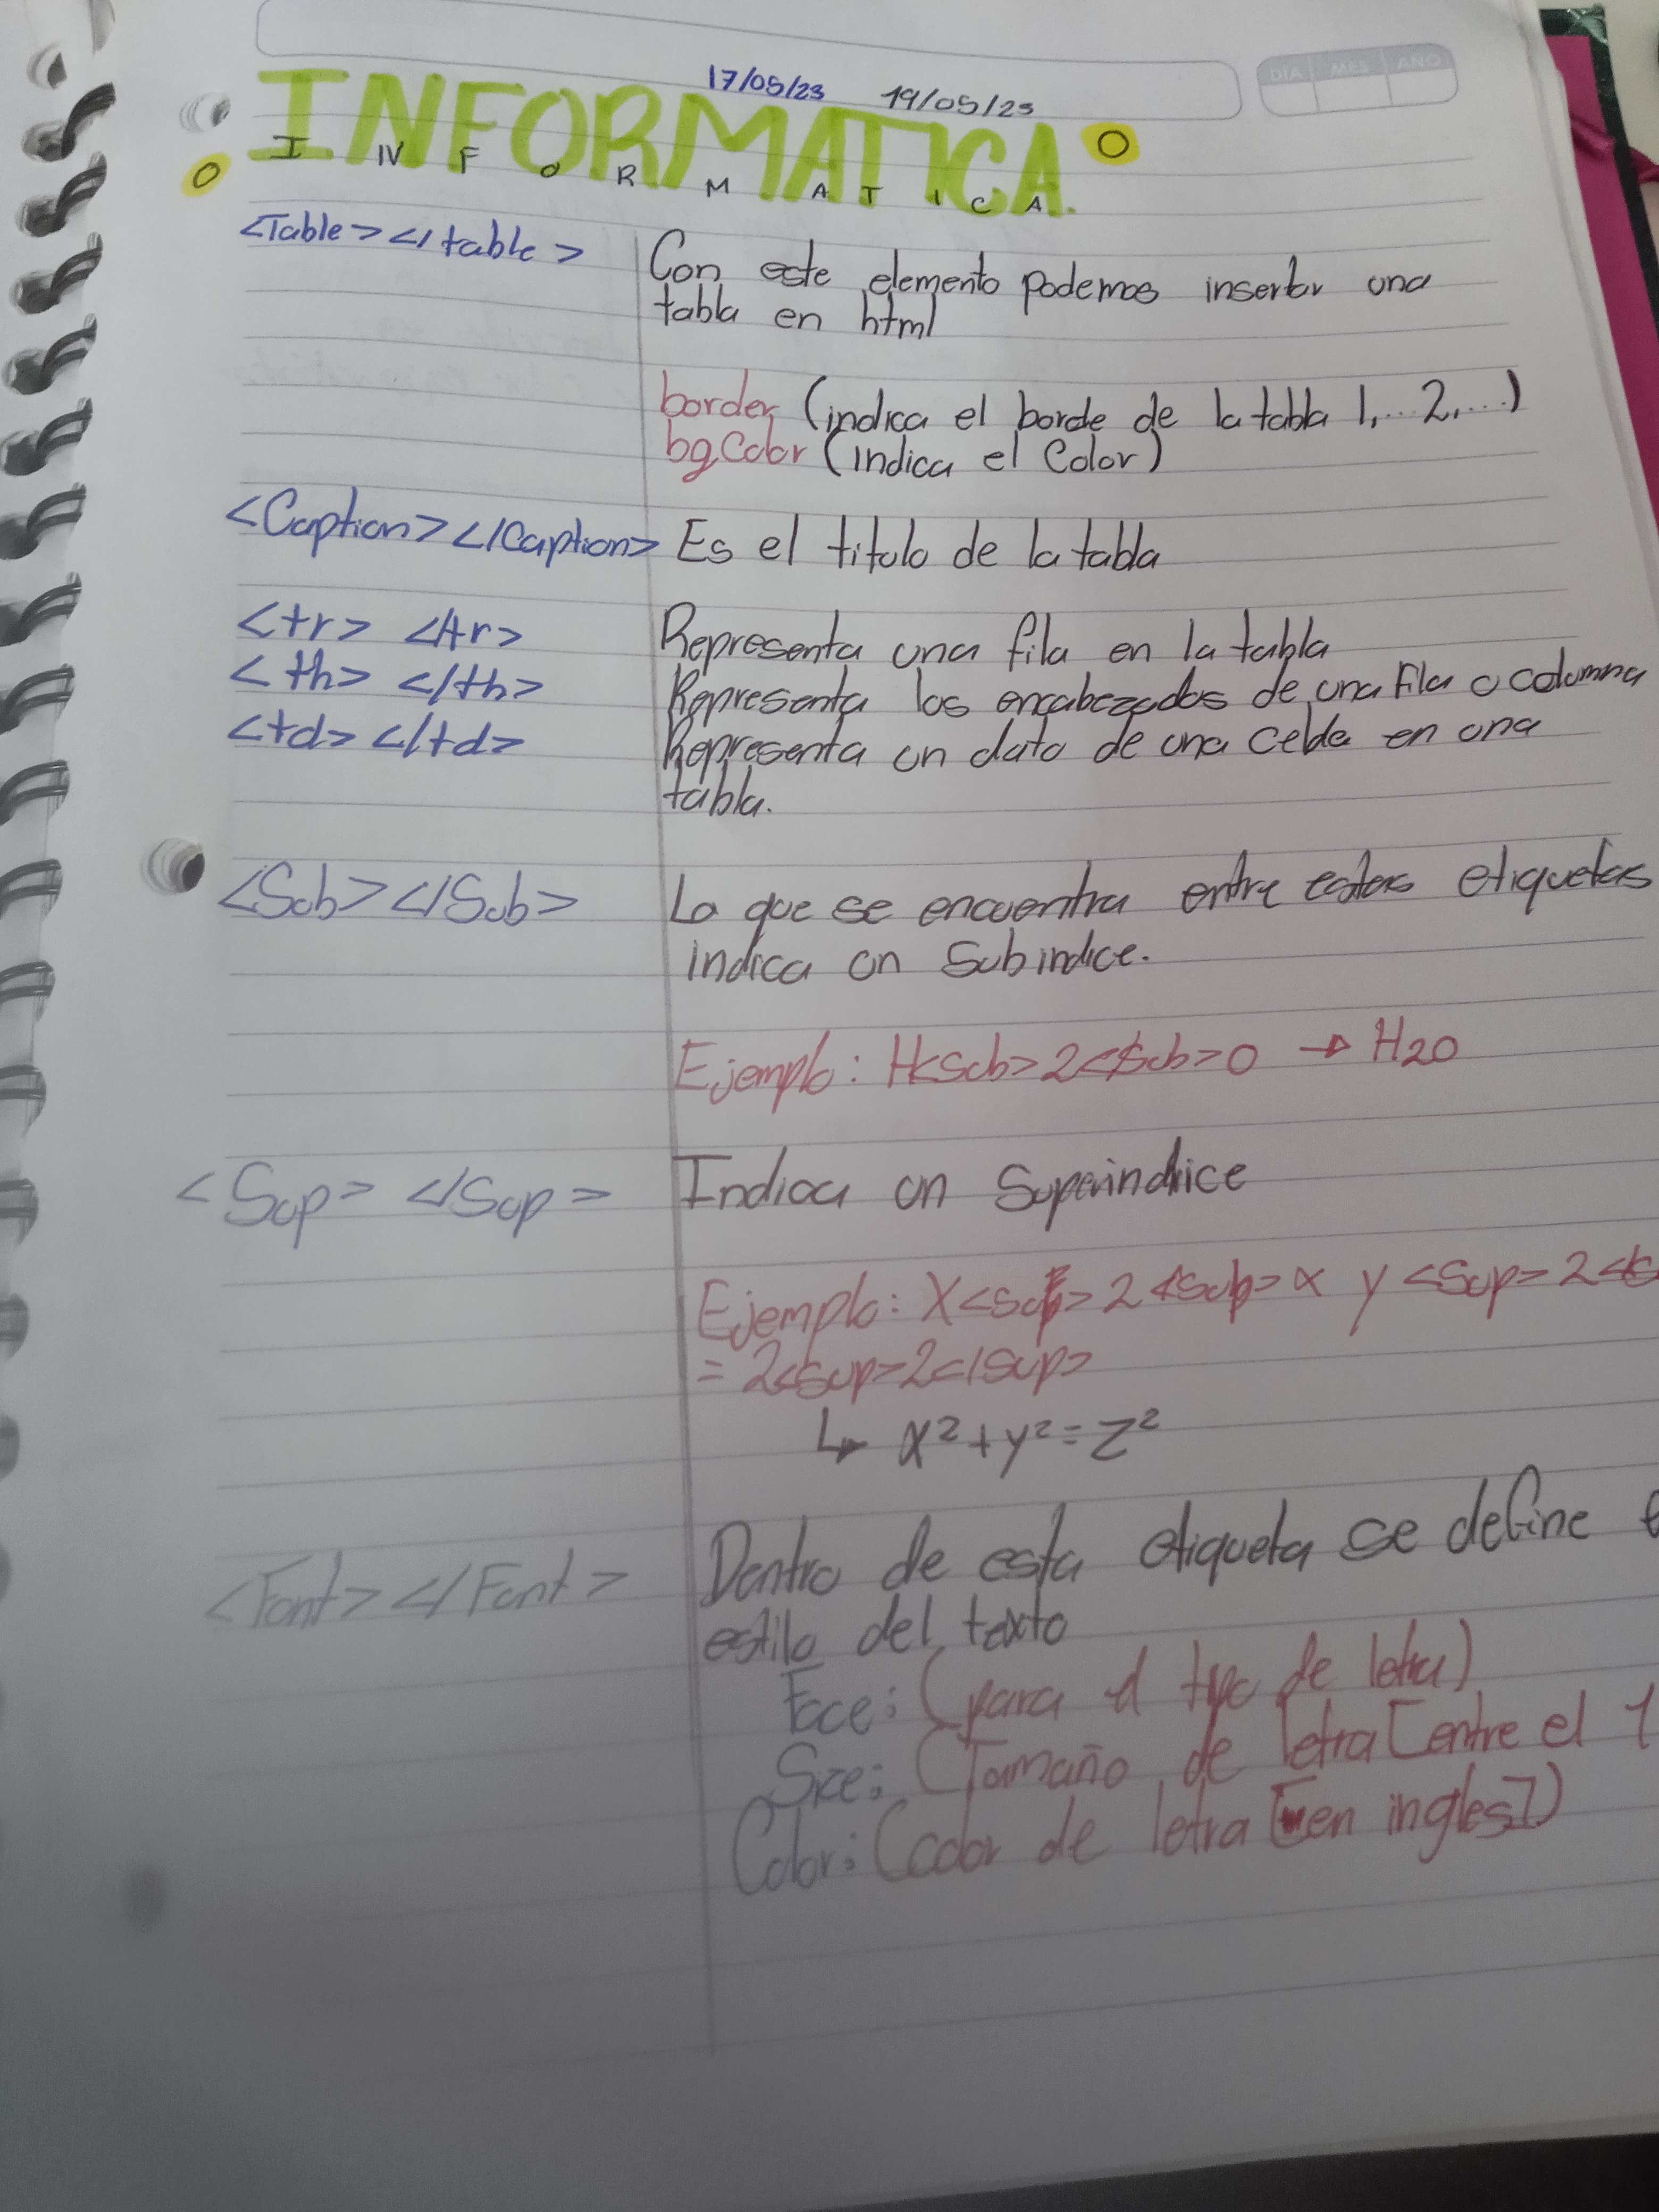 17/05/23 19/05/23
DÍA MES AÑO
INFORMATICA.
I N F O R M A T I C A
<Table></table> Con este elemento podemos insertar una
tabla en html
border (indica el borde de la tabla 1,...2,...)
bgcolor (indica el Color)
<Caption></Caption> Es el titulo de la tabla
<tr> </tr> Representa una fila en la tabla
<th> </th> Representa los encabezados de una fila o columna
<td></td> Representa un dato de una celda en una
tabla.
<Sub></Sub> Lo que se encuentra entre estas etiquetas
indica un Subindice.
Ejemplo: H<Sub>2</Sub>O → H2O
<Sup> </Sup> Indica un Superindice
Ejemplo: X<Sup>2</Sup>x y<Sup>2</
= 2<Sup>2</Sup>
↳ x²+y²=z²
<Font></Font> Dentro de esta etiqueta se define
estilo del texto
Face: (para el tipo de letra)
Size: (Tamaño de letra [entre el 1
Color: (color de letra [en ingles])